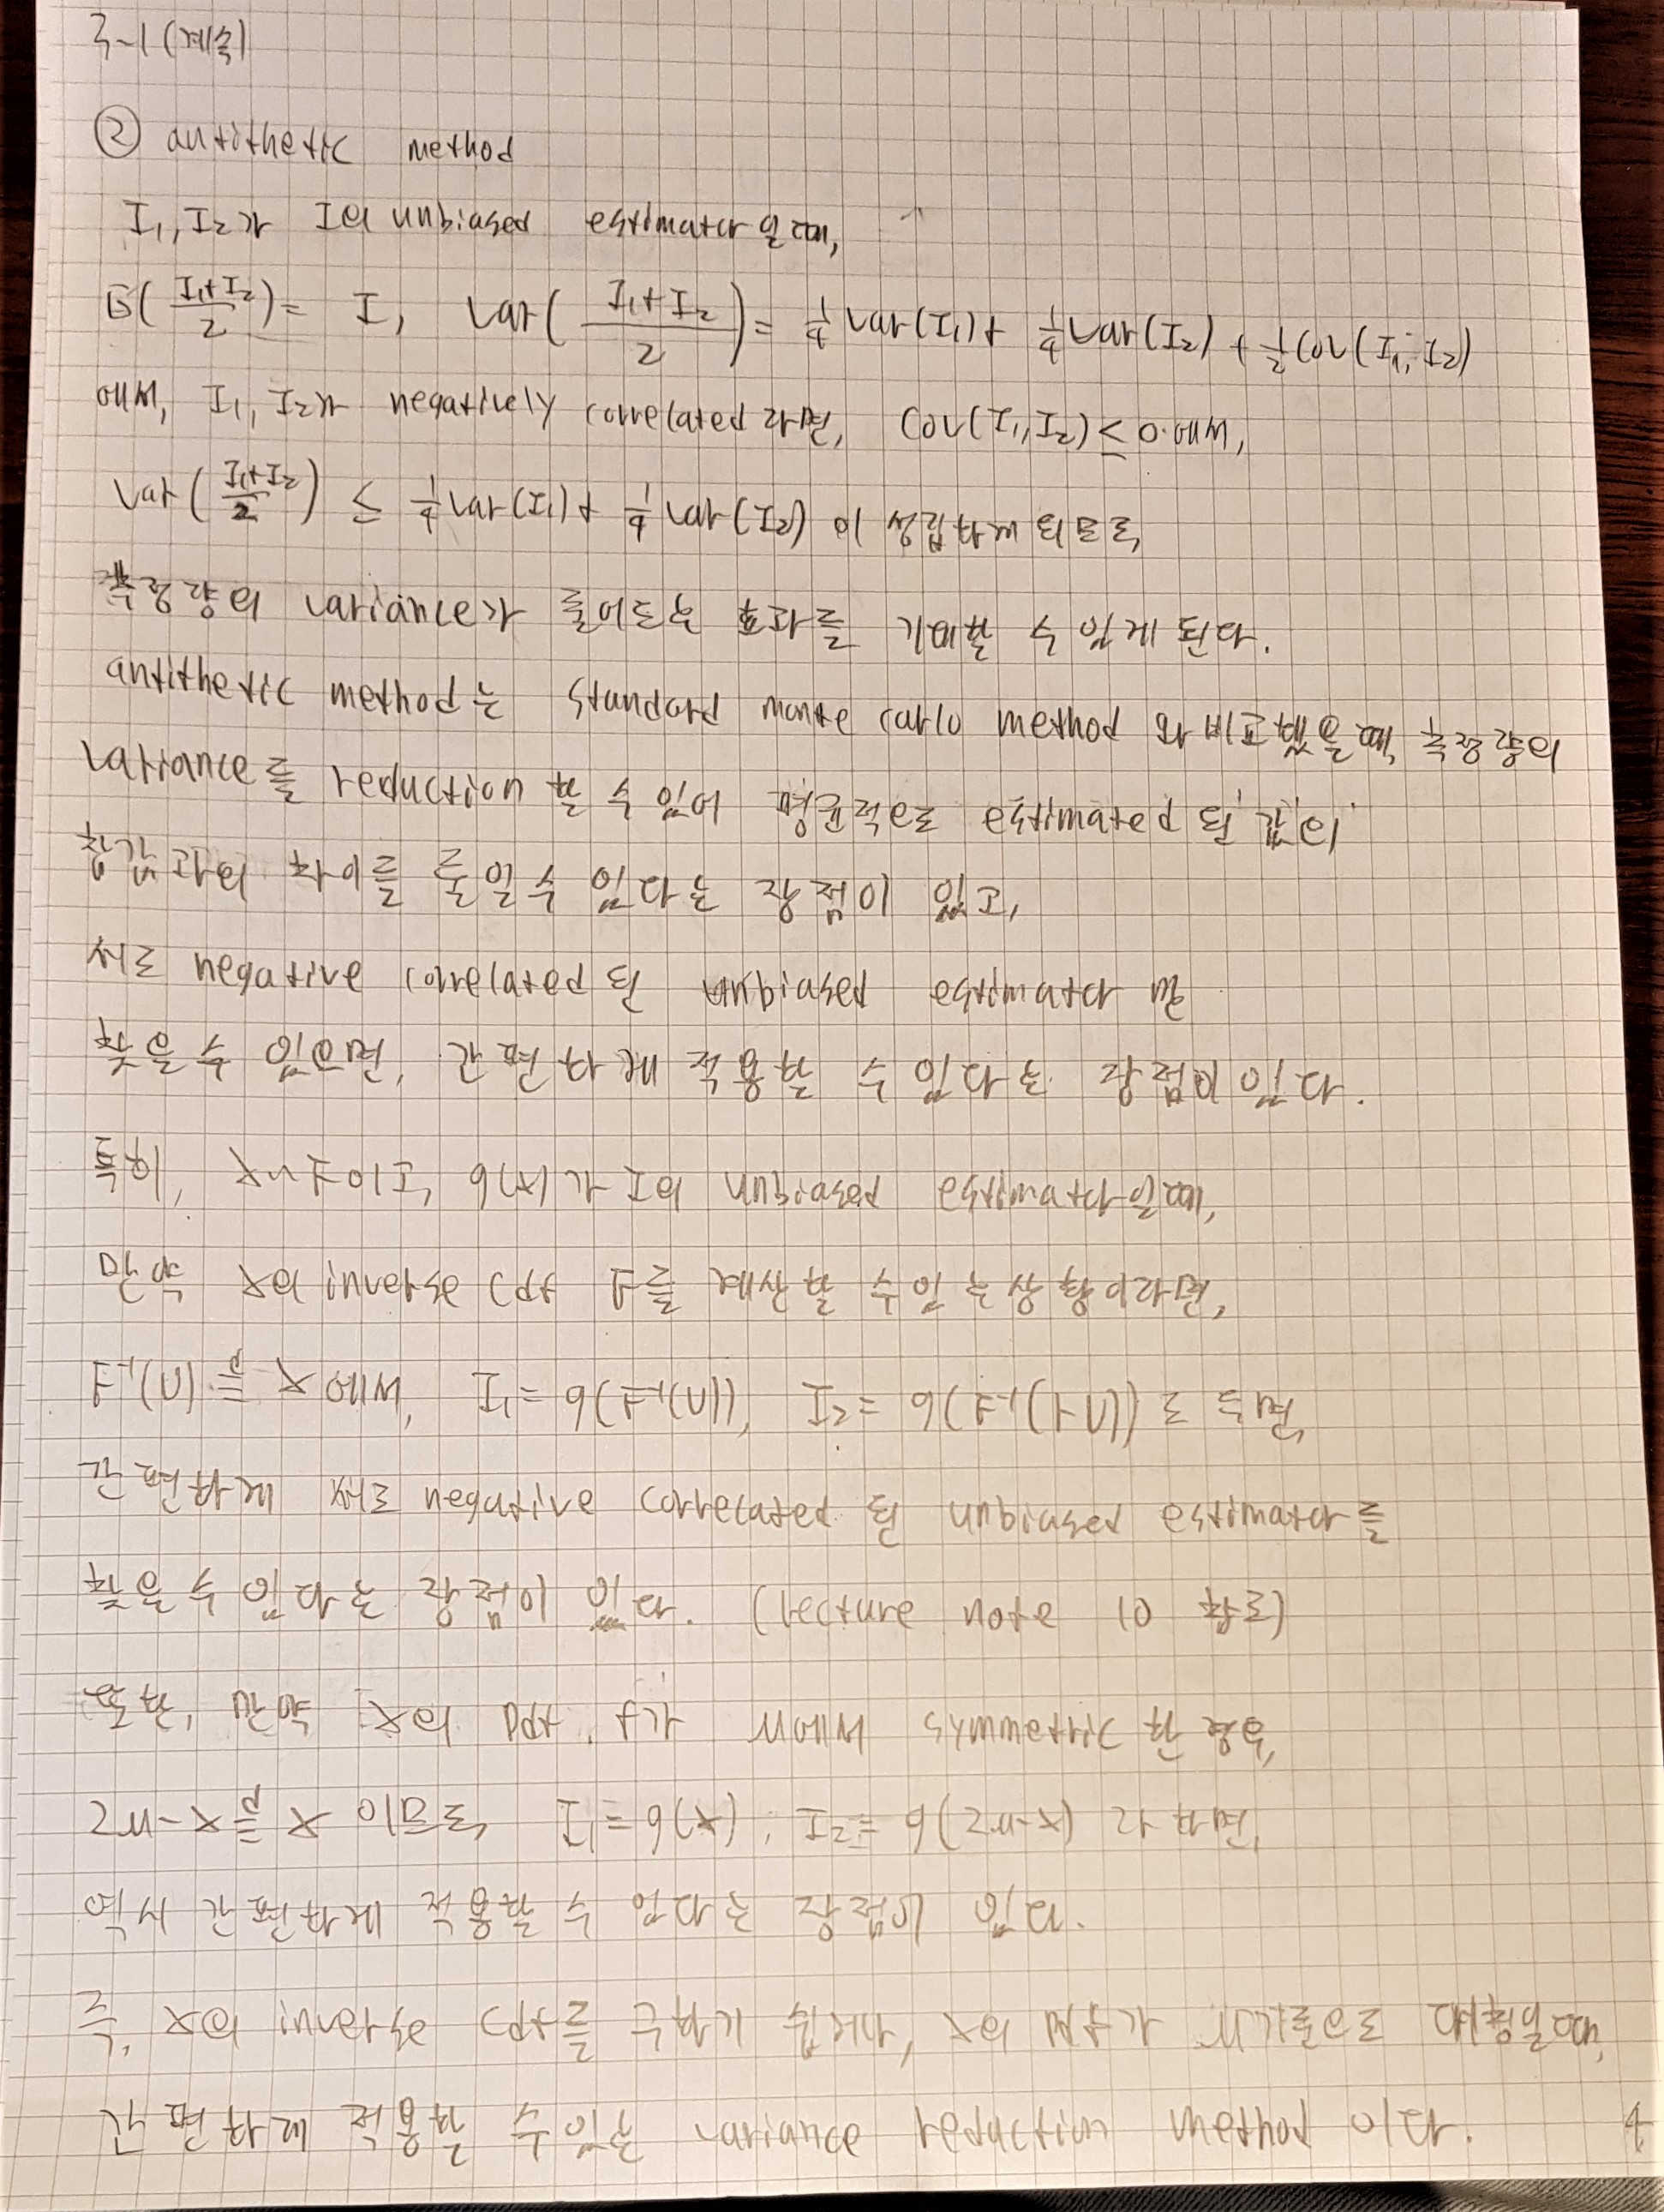 3-1 (계속)
② antithetic method
I₁, I₂가 I의 unbiased estimator일 때,
E((I₁+I₂)/2) = I, Var((I₁+I₂)/2) = 1/4 Var(I₁) + 1/4 Var(I₂) + 1/2 Cov(I₁, I₂)
에서, I₁, I₂가 negatively correlated라면, Cov(I₁, I₂) ≤ 0 에서,
Var((I₁+I₂)/2) ≤ 1/4 Var(I₁) + 1/4 Var(I₂) 이 성립하게 되므로,
측정량의 variance가 줄어드는 효과를 기대할 수 있게 된다.
antithetic method는 standard monte carlo method 와 비교했을 때, 측정량의
variance를 reduction 할 수 있어 평균적으로 estimated 된 값의
참값과의 차이를 줄일 수 있다는 장점이 있고,
서로 negative correlated 된 unbiased estimator 만
찾을 수 있으면, 간편하게 적용할 수 있다는 장점이 있다.
특히, X~F이고, g(X)가 I의 unbiased estimator일 때,
만약 X의 inverse cdf F를 계산할 수 있는 상황이라면,
F⁻¹(U) =ᵈ X 에서, I₁ = g(F⁻¹(U)), I₂ = g(F⁻¹(1-U)) 로 두면,
간편하게 서로 negative correlated 된 unbiased estimator를
찾을 수 있다는 장점이 있다. (lecture note 10 참조)
또한, 만약 X의 pdf f가 μ에서 symmetric 한 경우,
2μ-X =ᵈ X 이므로, I₁ = g(X), I₂ = g(2μ-X) 라 하면,
역시 간편하게 적용할 수 있다는 장점이 있다.
즉, X의 inverse cdf를 구하기 쉽거나, X의 pdf가 μ기준으로 대칭일 때,
간편하게 적용할 수 있는 variance reduction method 이다.
4